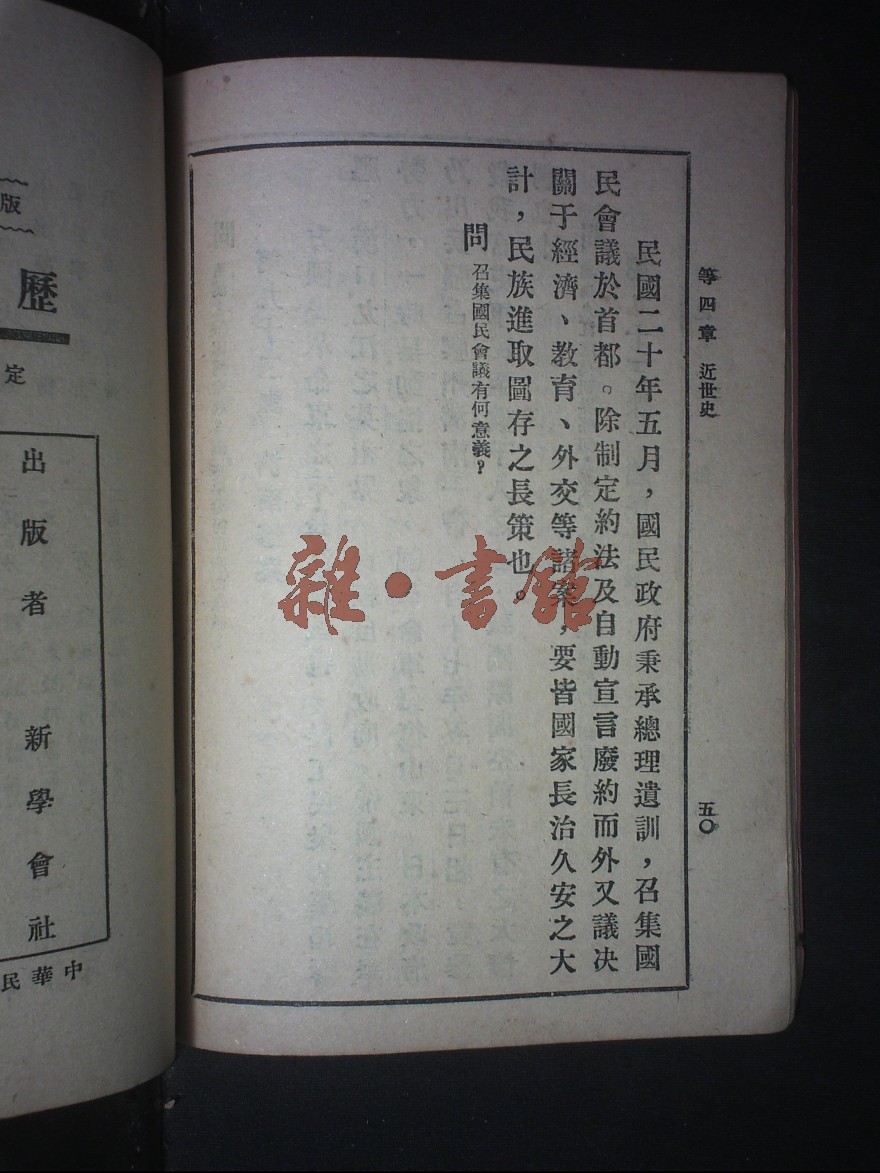 等四章 近世史
五〇
民國二十年五月，國民政府秉承總理遺訓，召集國
民會議於首都。除制定約法及自動宣言廢約而外又議决
關于經濟、教育、外交等諸案，要皆國家長治久安之大
計，民族進取圖存之長策也。
問 召集國民會議有何意義？
雜·書館
版
歷
定
出版者 新學會社
中華民